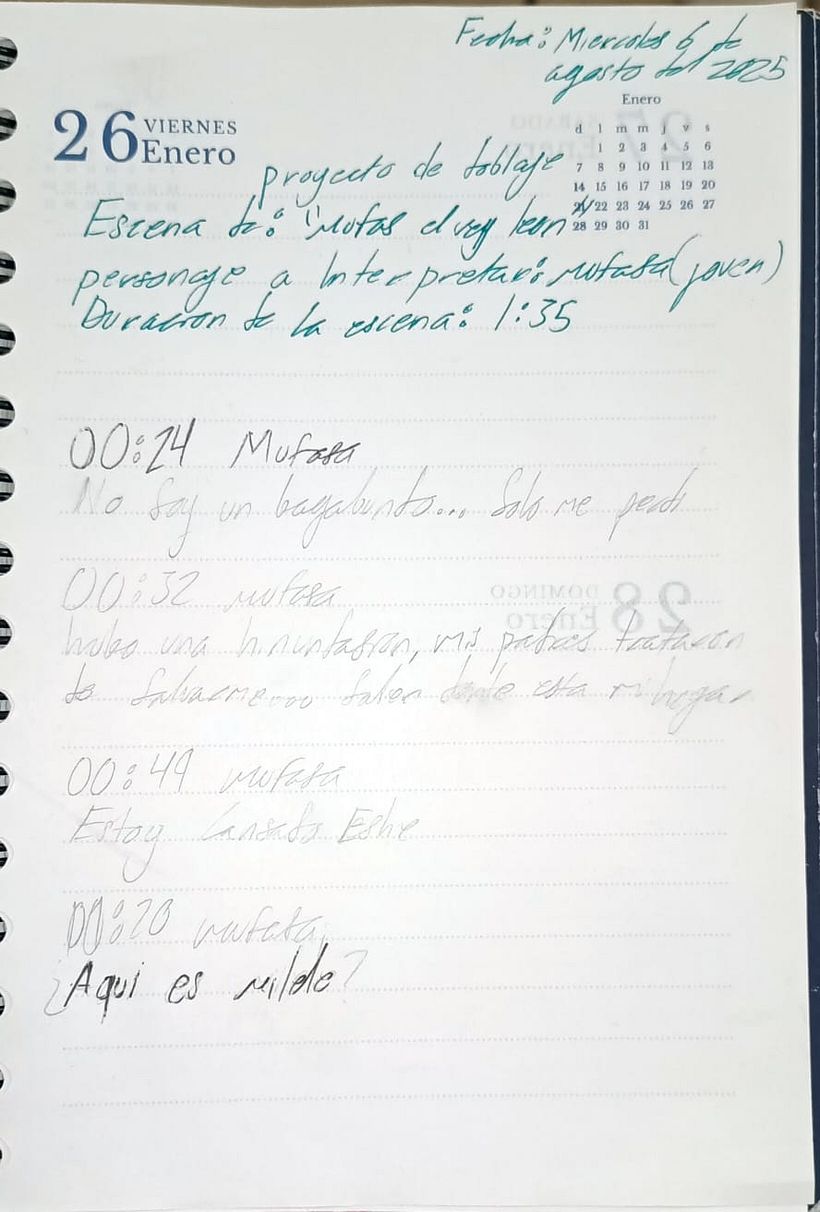 Fecha: Miercoles 6 de
agosto del 2025
26 VIERNES
Enero
Enero
d l m m j v s
1 2 3 4 5 6
7 8 9 10 11 12 13
14 15 16 17 18 19 20
21 22 23 24 25 26 27
28 29 30 31
proyecto de doblaje
Escena de: "Mufas el rey leon
personaje a Interpretar: mufasa (joven)
Duracion de la escena: 1:35
00:24 Mufasa
No soy un bagabundo... Solo me perdi
00:32 mufasa
hubo una hinundasion, mis padres trataron
de salvarme... saben donde esta mi hogar
00:49 mufasa
Estoy Cansado Eshe
00:20 mufasa
¿Aqui es milele?